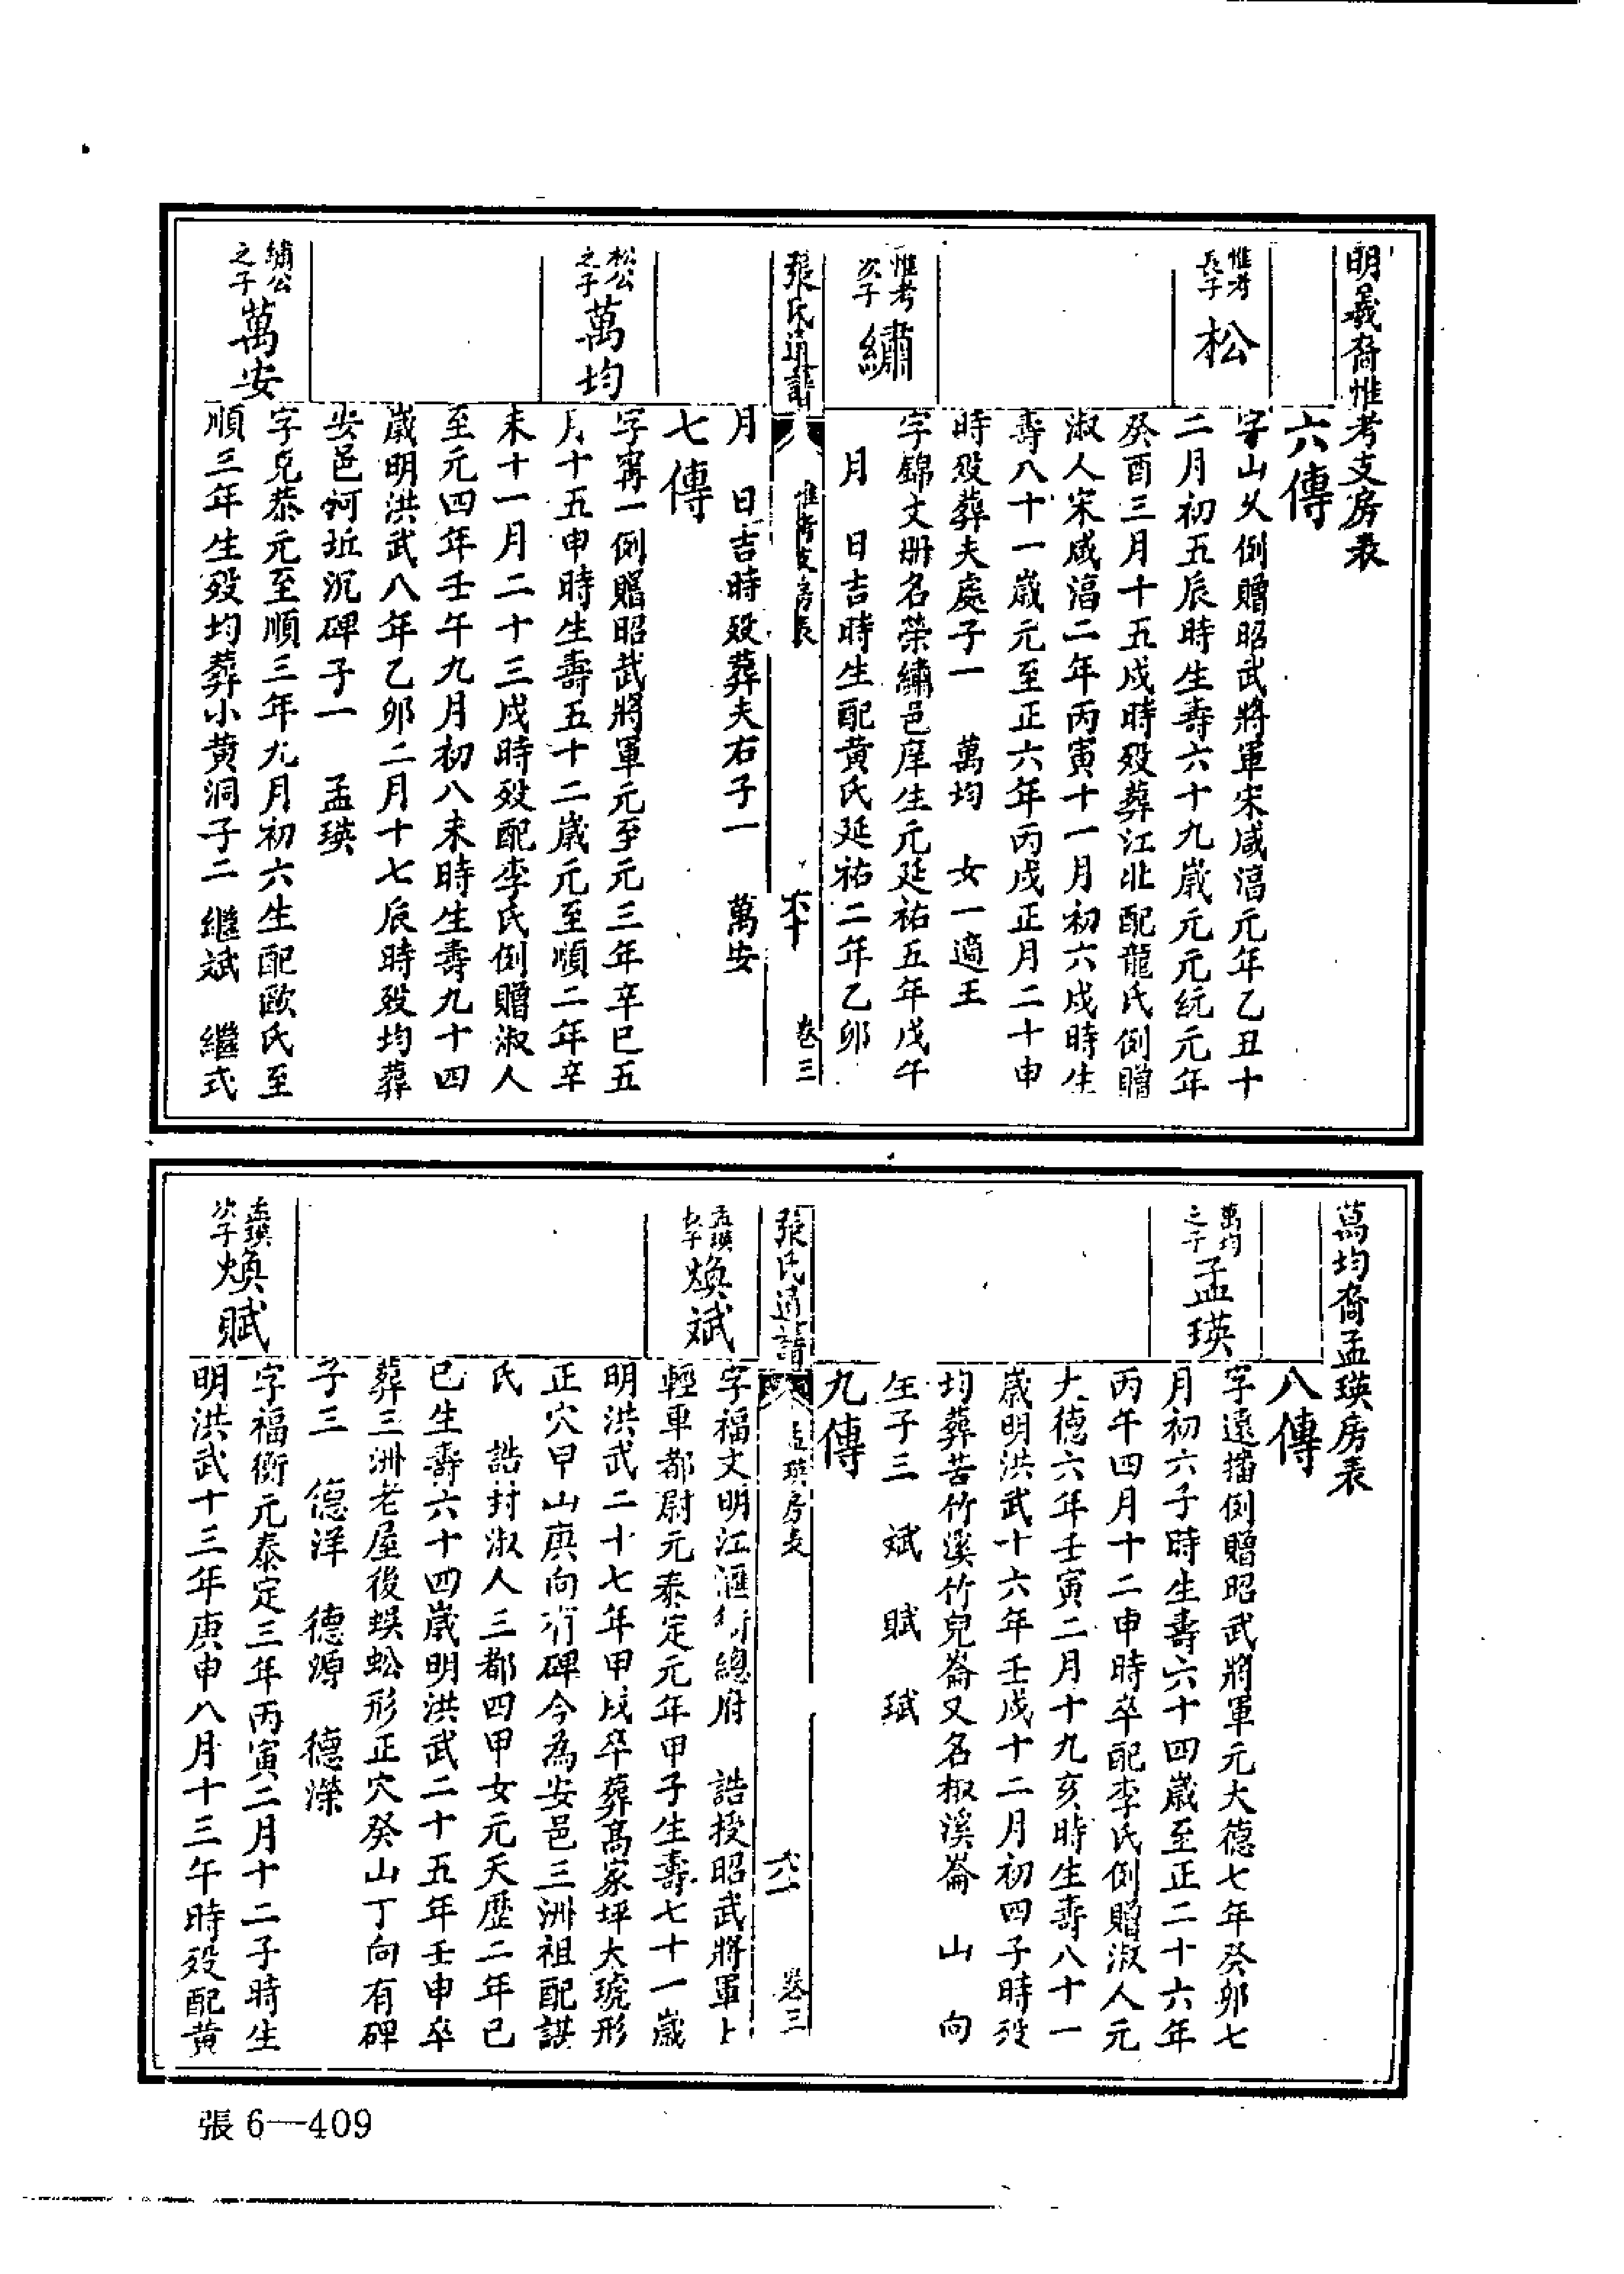 明義裔惟考支房表
六傳
惟考長子 松
字山乂例贈昭武將軍宋咸淳元年乙丑十
二月初五辰時生壽六十九歲元元統元年
癸酉三月十五戌時歿葬江北配龍氏例贈
淑人宋咸淳二年丙寅十一月初六戌時生
壽八十一歲元至正六年丙戌正月二十申
時歿葬夫處子一 萬均 女一適王
惟考次子 繡
字錦文冊名榮繡邑庠生元延祐五年戊午
月 日吉時生配黃氏延祐二年乙卯
張氏通譜 惟考支房表 六十 卷三
月 日吉時歿葬夫右子一 萬安
七傳
松公之子 萬均
字甯一例贈昭武將軍元至元三年辛巳五
月十五申時生壽五十二歲元至順二年辛
未十一月二十三戌時歿配李氏例贈淑人
至元四年壬午九月初八未時生壽九十四
歲明洪武八年乙卯二月十七辰時歿均葬
安邑柯坵沉碑子一 孟瑛
繡公之子 萬安
字克恭元至順三年九月初六生配歐氏至
順三年生歿均葬小黃洞子二 繼斌 繼式
萬均裔孟瑛房表
八傳
萬均之子 孟瑛
字遠播例贈昭武將軍元大德七年癸卯七
月初六子時生壽六十四歲至正二十六年
丙午四月十二申時卒配李氏例贈淑人元
大德六年壬寅二月十九亥時生壽八十一
歲明洪武十六年壬戌十二月初四子時歿
均葬苦竹溪竹兒崙又名椒溪崙 山 向
生子三 斌 賦 珷
九傳
張氏通譜 孟瑛房表 六一 卷三
孟瑛長子 煥斌
字福文明江滙衛總府 誥授昭武將軍上
輕車都尉元泰定元年甲子生壽七十一歲
明洪武二十七年甲戌卒葬高家坪大琥形
正穴甲山庚向有碑今為安邑三洲祖配諶
氏 誥封淑人三都四甲女元天歷二年己
巳生壽六十四歲明洪武二十五年壬申卒
葬三洲老屋後蜈蚣形正穴癸山丁向有碑
子三 德洋 德源 德濼
孟瑛次子 煥賦
字福衡元泰定三年丙寅二月十二子時生
明洪武十三年庚申八月十三午時歿配黃
張6—409